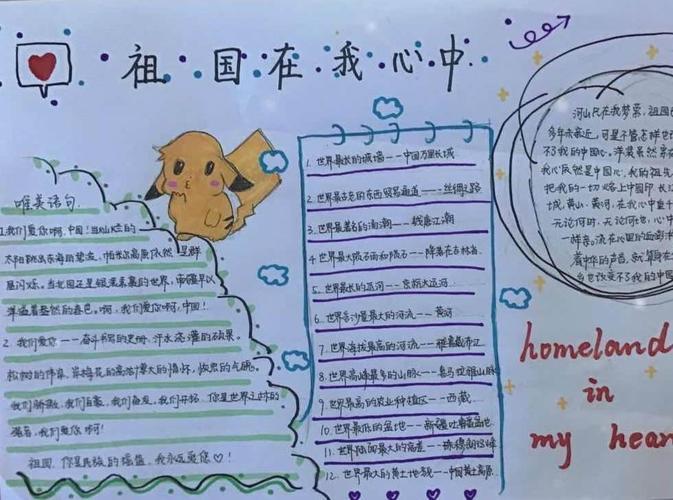 祖国在我心中
唯美语句
1.我们爱你啊,中国!当灿烂的
太阳跳出东海的碧波,帕米尔高原依然是群
星闪烁。当北国还是银装素裹的世界,南疆早以
洋溢着盎然的春色。啊,我们爱你啊,中国!
2.我们爱你——奋斗书写的史册,汗水浇灌的硕果。
松树的伟岸,
我们骄傲,我们自豪,我们奋发,我们开拓
强者,我们爱你啊!
祖国,你是民族的摇篮,我永远爱您♡!
1.世界最长的城墙——中国万里长城
2.世界最古老的东西贸易通道——丝绸之路
3.世界最著名的涌潮——钱塘江潮
4.世界最大陨石雨和陨石——降落在吉林省
5.世界最长的运河——京杭大运河
6.世界含沙量最大的河流——黄河
7.世界海拔最高的河流——雅鲁藏布江
8.世界高峰最多的山脉——喜马拉雅山脉
9.世界最高的农业种植区——西藏
10.世界最低的盆地——新疆吐鲁番盆地
11.世界陆面最大的高差——珠穆朗玛峰
12.世界最大的黄土地貌——中国黄土高原
河山只在我梦萦,祖国已
多年未亲近,可是不管怎样也改
不了我的中国心。洋装虽然穿在
我心依然是中国心,我的祖先
把我的一切烙上中国印 长江
城,黄山,黄河,在我心中重千
无论何时,无论何地,心中
一样亲。流在心里的血,澎湃
着中华的声音,就算身在
乡也改变不了我的中国
homeland
in
my hear